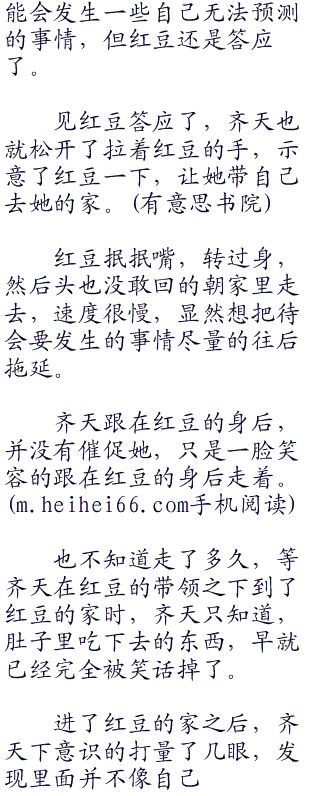 能会发生一些自己无法预测
的事情，但红豆还是答应
了。
见红豆答应了，齐天也
就松开了拉着红豆的手，示
意了红豆一下，让她带自己
去她的家。(有意思书院)
红豆抿抿嘴，转过身，
然后头也没敢回的朝家里走
去，速度很慢，显然想把待
会要发生的事情尽量的往后
拖延。
齐天跟在红豆的身后，
并没有催促她，只是一脸笑
容的跟在红豆的身后走着。
(m.heihei66.com手机阅读)
也不知道走了多久，等
齐天在红豆的带领之下到了
红豆的家时，齐天只知道，
肚子里吃下去的东西，早就
已经完全被笑话掉了。
进了红豆的家之后，齐
天下意识的打量了几眼，发
现里面并不像自己